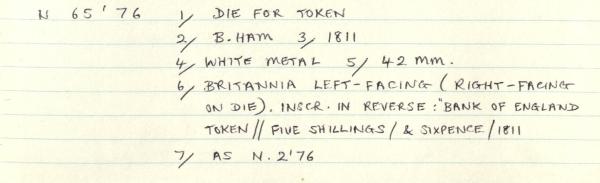 N 65'76 1/ DIE FOR TOKEN
2/ B.HAM 3/ 1811
4/ WHITE METAL 5/ 42 MM.
6/ BRITANNIA LEFT-FACING (RIGHT-FACING
ON DIE). INSCR. IN REVERSE: "BANK OF ENGLAND
TOKEN// FIVE SHILLINGS/ & SIXPENCE/1811
7/ AS N.2'76